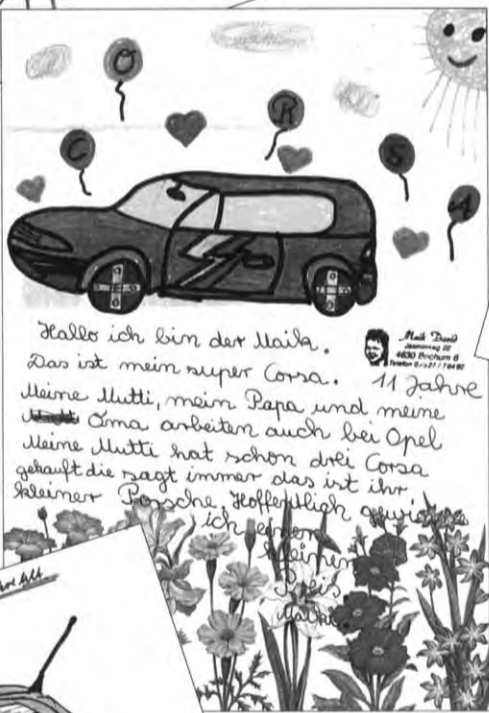 C O R S A
Hallo ich bin der Maik.
Das ist mein super Corsa.
11 Jahre
4630 Bochum 6
Meine Mutti, mein Papa und meine
Oma arbeiten auch bei Opel
Meine Mutti hat schon drei Corsa
gekauft die sagt immer das ist ihr
kleiner Porsche. Hoffentlich
ich einen
kleinen
Preis
Maik